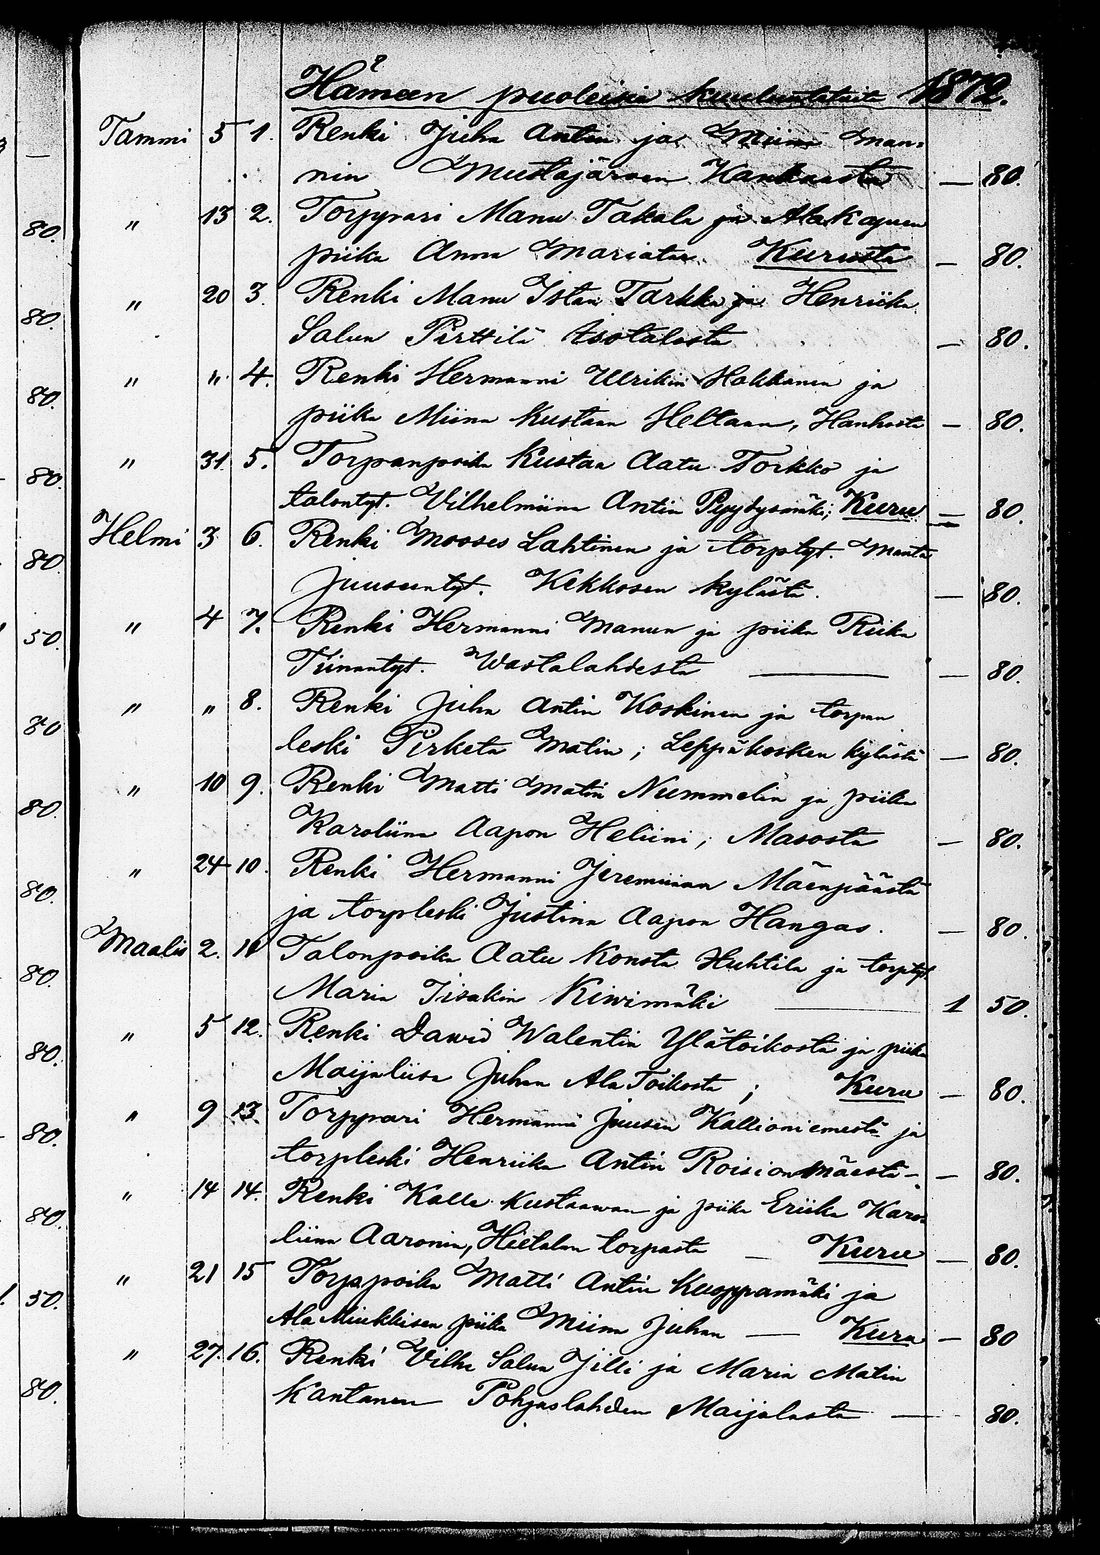 Hämeen puoleisia kuulutuksia 1872.
Tammi 5 1. Renki Juha Antin ja Miina Man-
nin Mustajärven Kankaasta — 80.
" 13 2. Torppari Manu Takala ja Ala Kapeen
piika Anna Mariatar. Kurusta — 80.
" 20 3. Renki Manu Istan Tarkka ja Henriika
Salun Perttilä Isotalosta — 80.
" " 4. Renki Hermanni Ulrikin Hakkanen ja
piika Miina Kustaan Heltaan, Hanhosta — 80.
" 31. 5. Torpanpoika Kustaa Aatu Torkko ja
talontyt. Vilhelmiina Antin Pyydysmäki; Kuru — 80.
Helmi 3 6. Renki Mooses Lahtinen ja torptyt. Manta
Juuseentyt. Kekkosen kylästä. — 80.
" 4 7. Renki Hermanni Manun ja piika Riika
Tiinantyt. Wastalahdesta — 80.
" " 8. Renki Juha Antin Koskinen ja torpan
leski Pirketa Matin; Leppäkosken kylästä — 80.
" 10 9. Renki Matti Matin Nummelin ja piika
Karoliina Aapon Heliini; Masosta — 80.
" 24 10. Renki Hermanni Jeremiian Mäenpäästä
ja torpleski Justina Aapon Hangas. — 80.
Maalis 2. 11 Talonpoika Aatu Konsta Huhtila ja torptyt
Maria Iisakin Kiwimäki 1 50.
" 5 12. Renki Dawid Walentin Ylätoikosta ja piika
Maijaliisa Juhan Ala Toikosta; Kuru — 80.
" 9 13. Torppari Hermanni Juusen Kallioniemestä ja
torpleski Henriika Antin Roision mäestä — 80.
" 14 14. Renki Kalle Kustaawan ja piika Eriika Karo-
liina Aaronin, Hietalan torpasta — Kuru — 80.
" 21 15 Torppoika Matti Antin Kuoppamäki ja
Ala Miekkisen piika Miina Juhan — Kuru — 80
" 27. 16. Renki Vilhe Salun Jilli ja Maria Matin
Kantanen Pohjaslahden Maijalasta — 80.
80.
80.
80.
80.
80.
50.
80
80.
80.
80.
80.
80.
80.
50.
80.